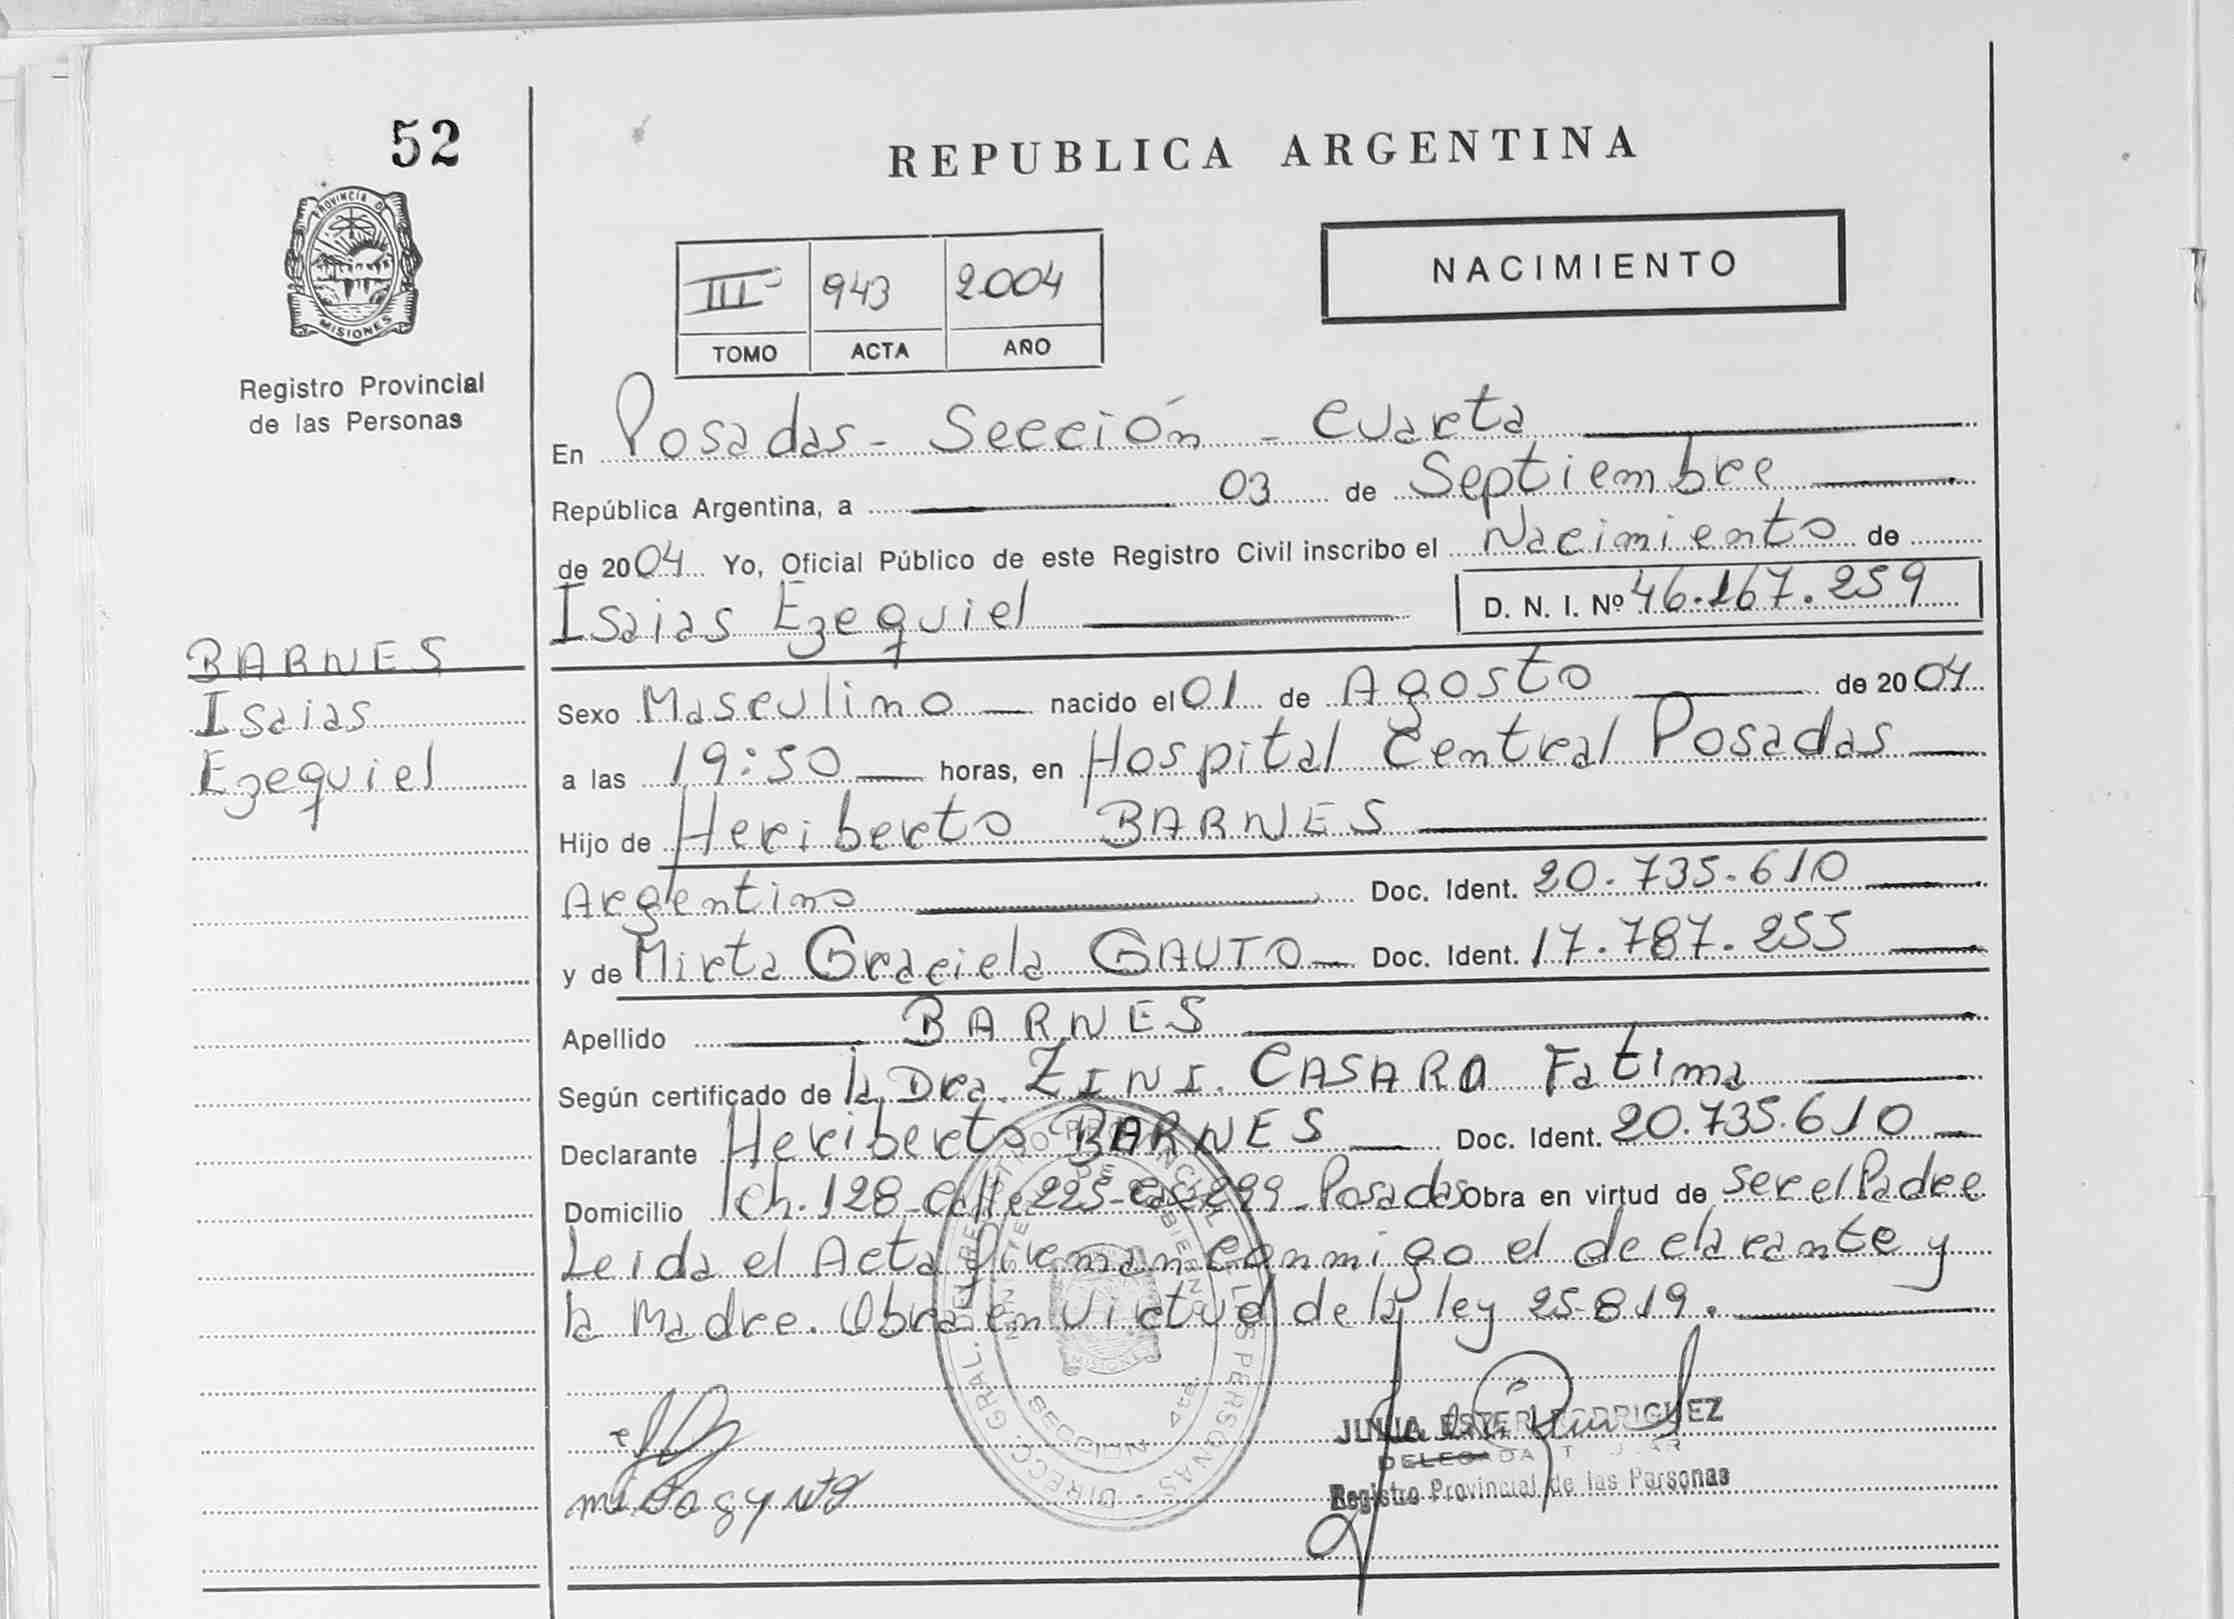 52
REPUBLICA ARGENTINA
PROVINCIA D
MISIONES
Registro Provincial
de las Personas
NACIMIENTO
III 943 2.004
TOMO ACTA AÑO
En Posadas - Sección - Cuarta
República Argentina, a 03 de Septiembre
de 2004 Yo, Oficial Público de este Registro Civil inscribo el Nacimiento de
Isaias Ezequiel D. N. I. Nº 46.167.259
BARNES
Isaias
Ezequiel
Sexo Masculino nacido el 01 de Agosto de 2004
a las 19:50 horas, en Hospital Central Posadas
Hijo de Heriberto BARNES
Argentino Doc. Ident. 20.735.610
y de Mirta Graciela GAUTO Doc. Ident. 17.787.255
Apellido BARNES
Según certificado de la Dra. ZINI. CASARO Fatima
Declarante Heriberto BARNES Doc. Ident. 20.735.610
Domicilio ch. 128 - calle 225 - cas 299 - Posadas Obra en virtud de ser el Padre
Leida el Acta Firman conmigo el declarante y
la Madre. Obra en virtud de la ley 25-819.
DIRECC. GRAL. DEL REGISTRO PROVINCIAL DE LAS PERSONAS
MISIONES
JULIA ESTER RODRIGUEZ
DELEGADA
Registro Provincial de las Personas